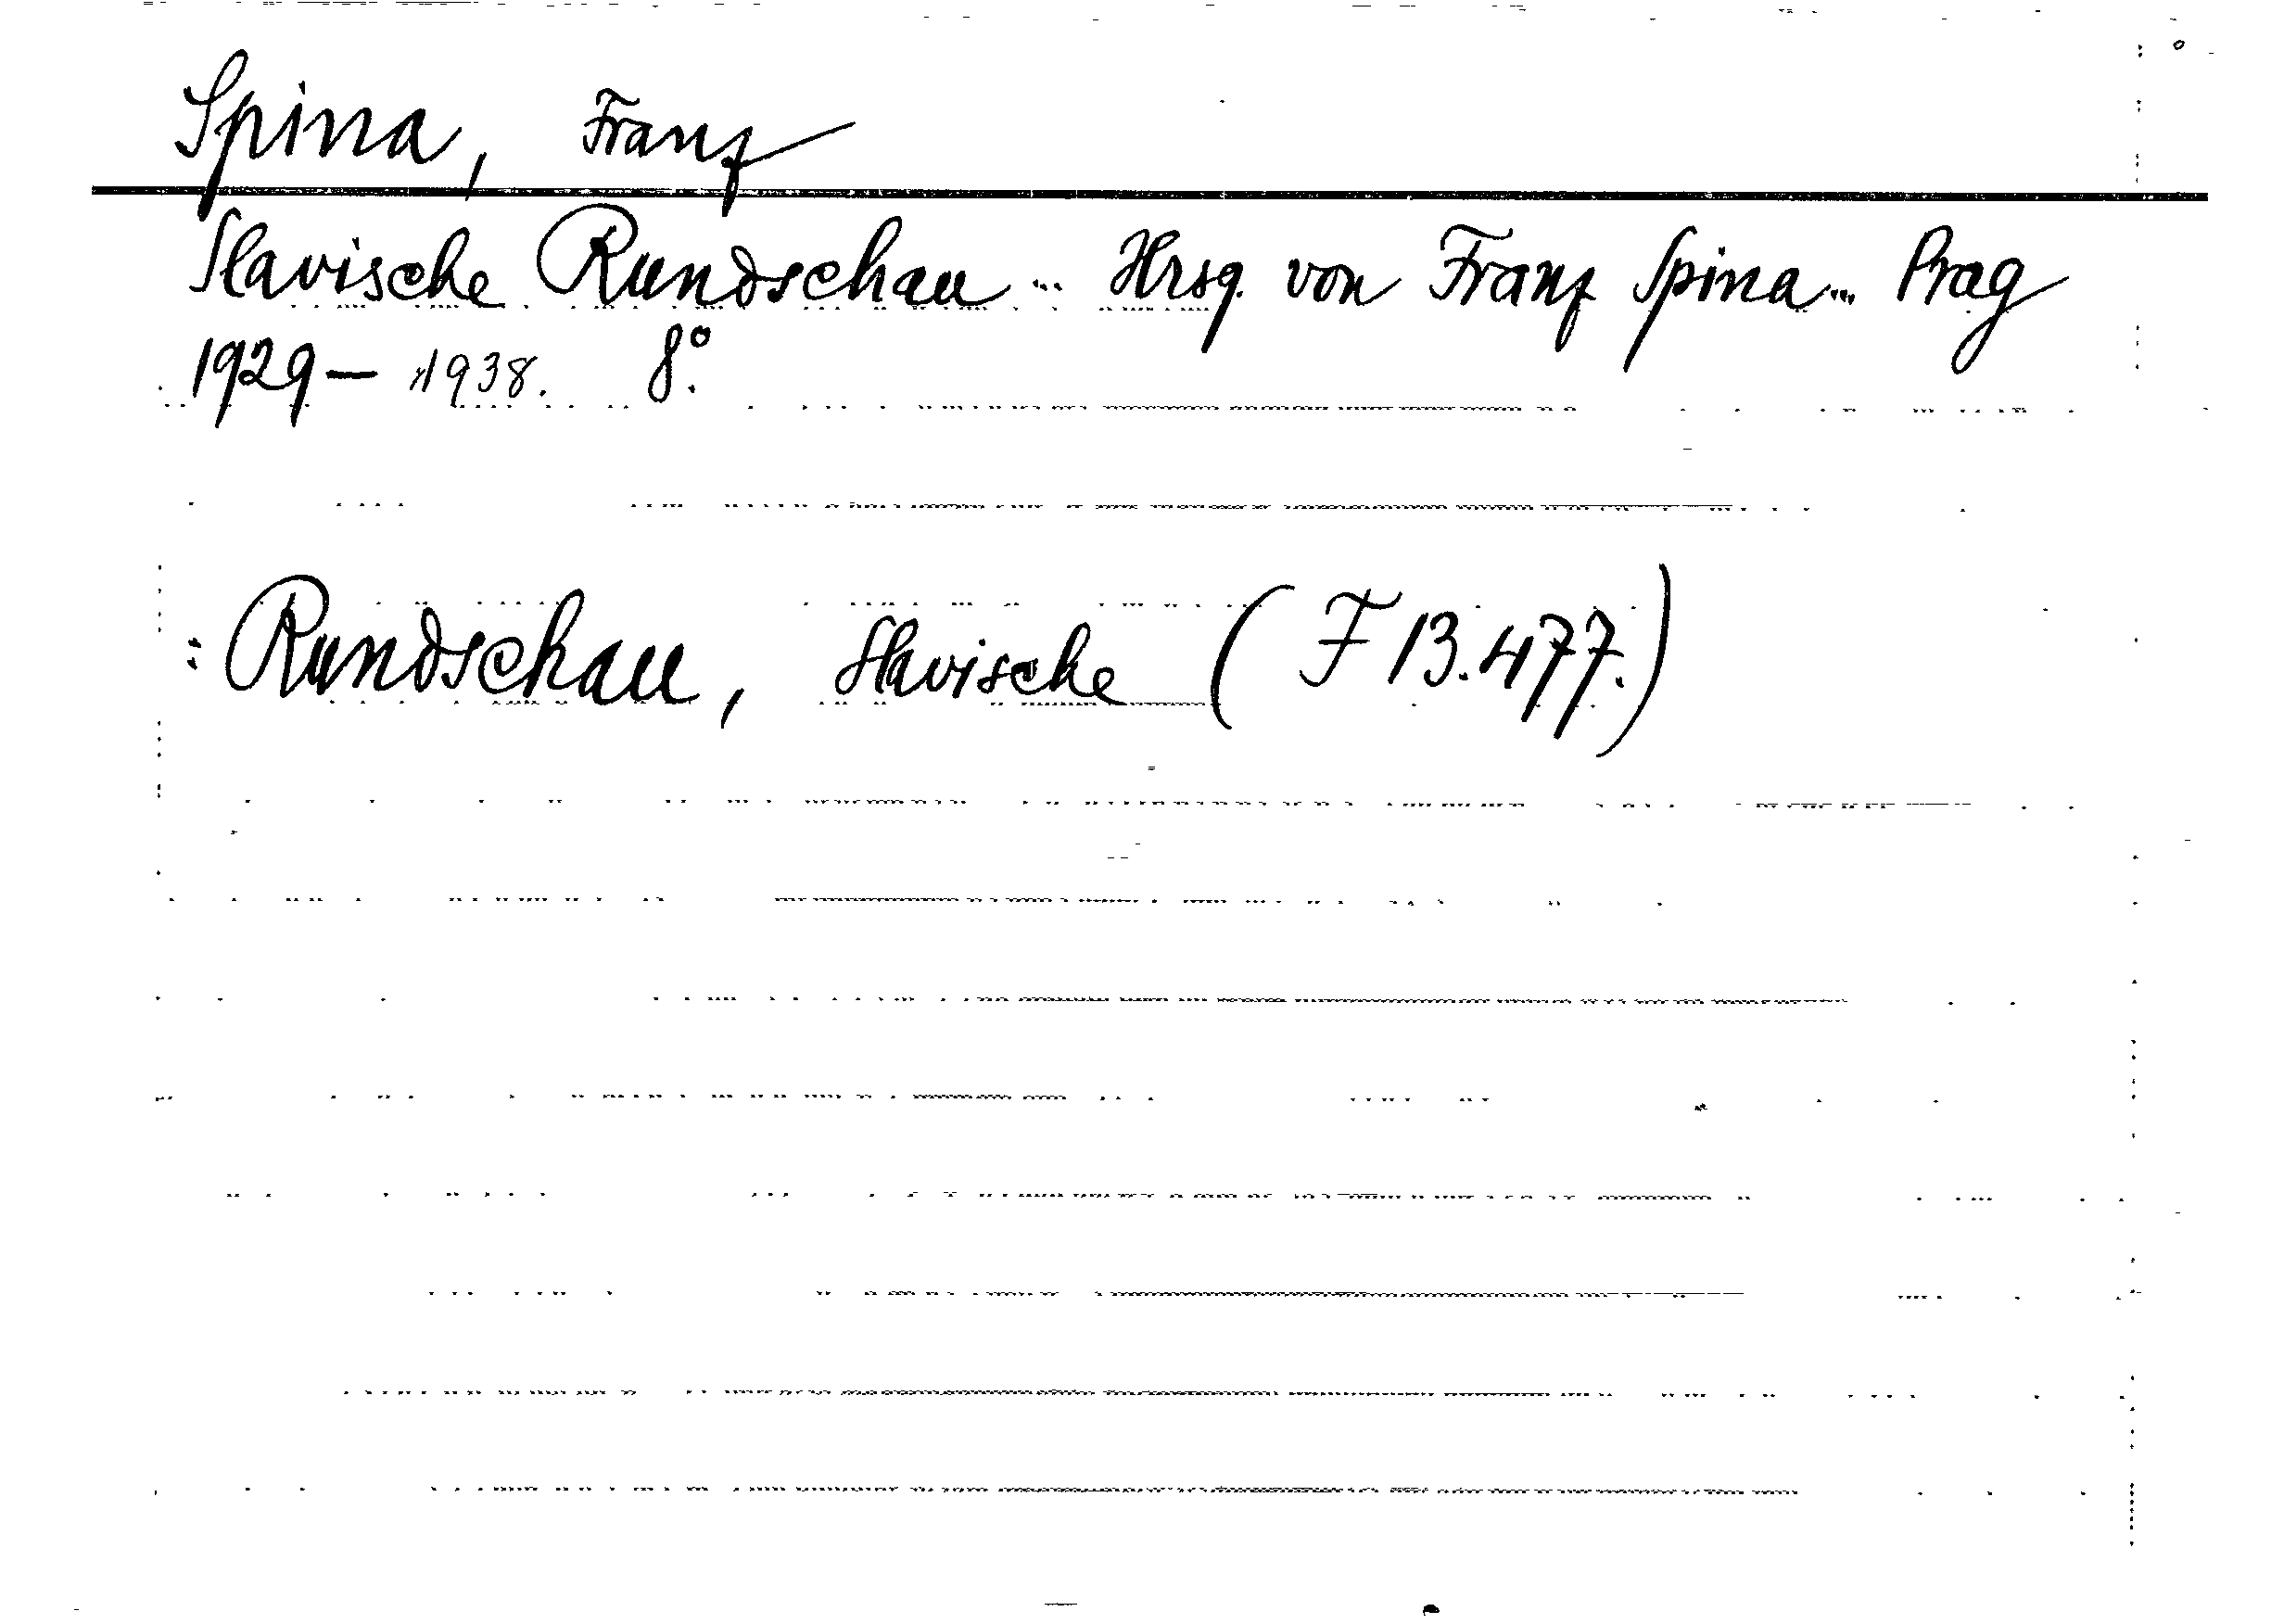 Spina, Franz
Slavische Rundschau ... Hrsg. von Franz Spina ... Prag
1929 — 1938. 8°.
: Rundschau, Slavische (F 13.477.)